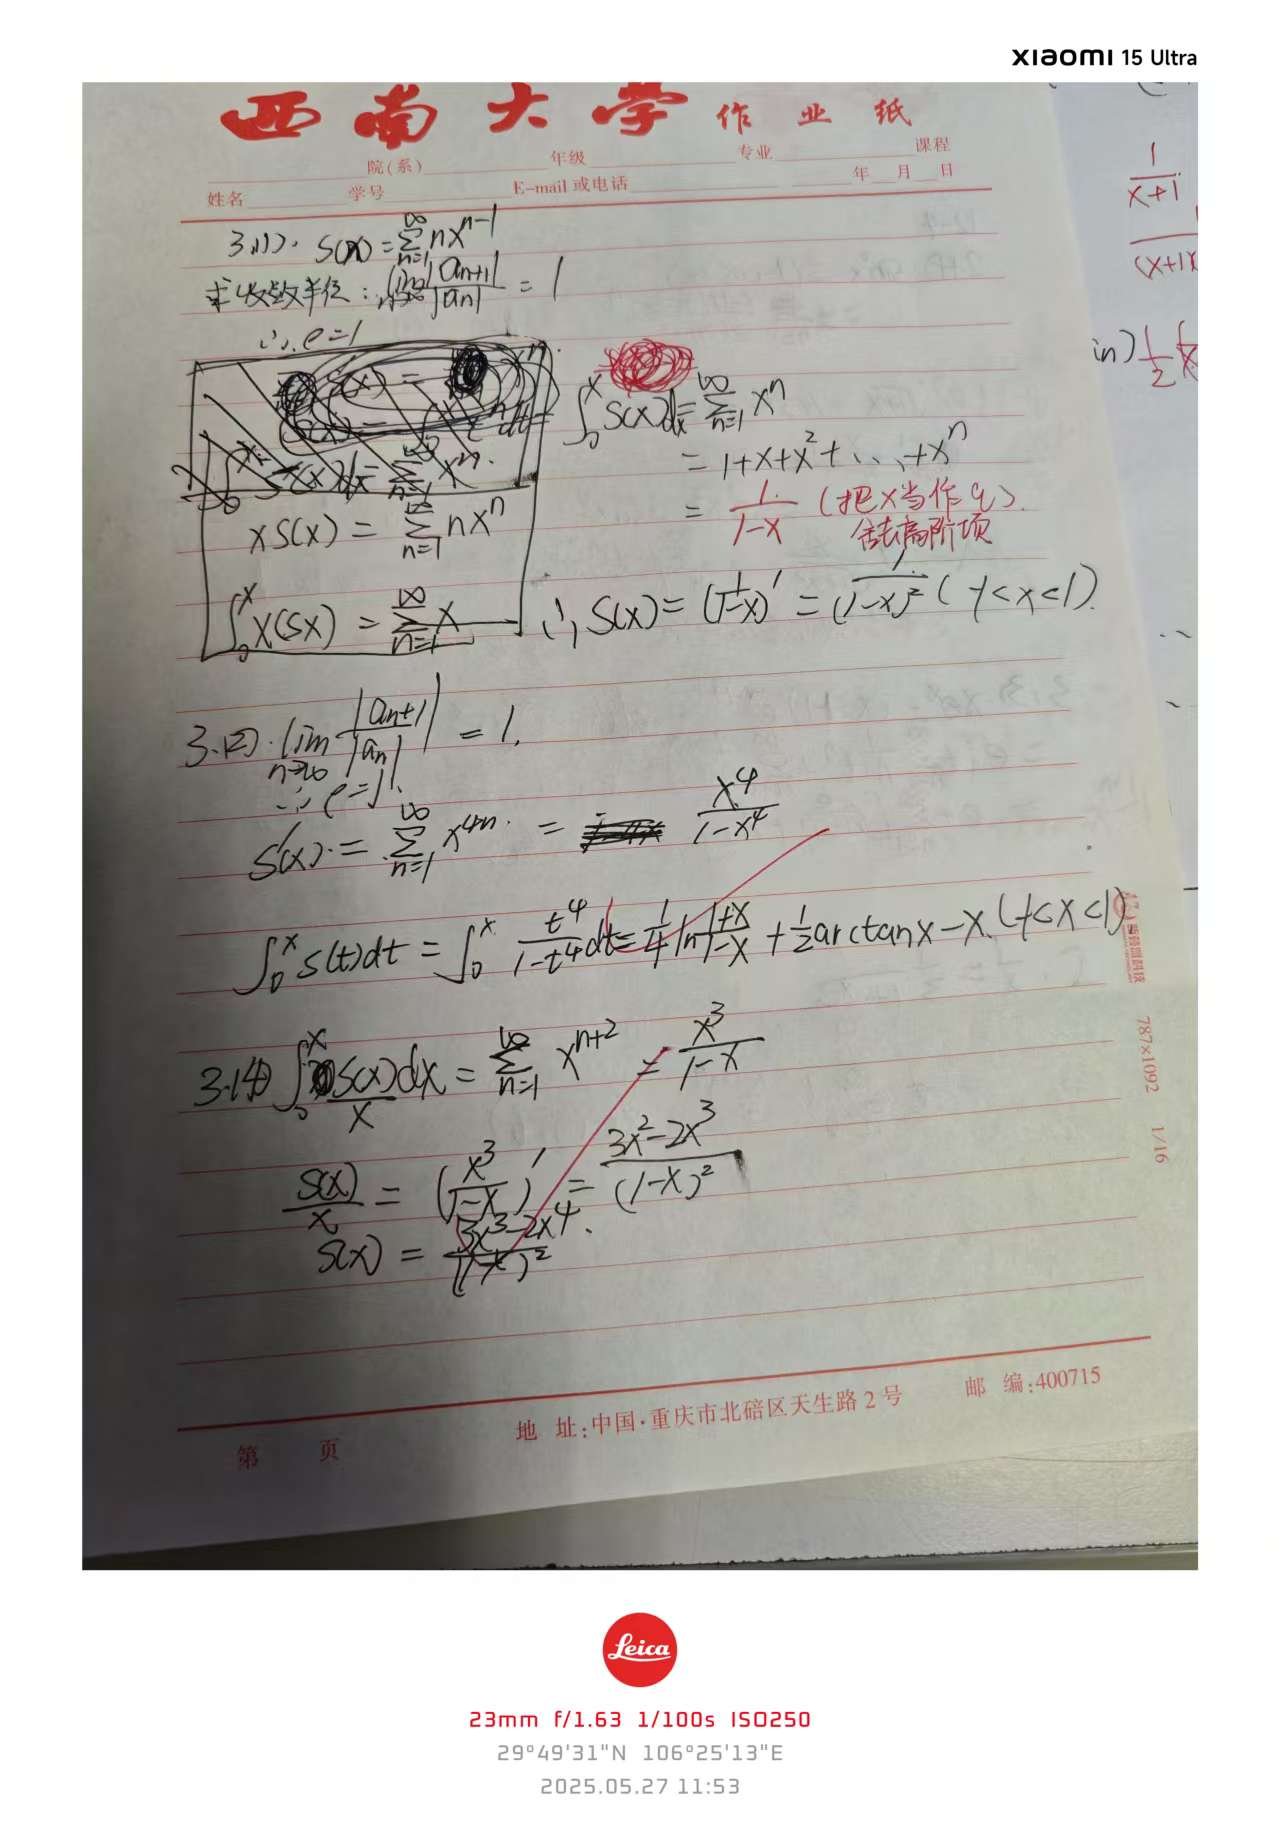 XIAOMI 15 Ultra
西南大学 作业纸
院(系) 年级 专业 课程
姓名 学号 E-mail 或电话 年 月 日
3.(1). S(x) = ∑_{n=1}^{∞} nx^{n-1}
求收敛半径: lim_{n→∞} |a_{n+1}|/|a_n| = 1
∴ρ=1
∫_0^x S(x)dx = ∑_{n=1}^{∞} x^n
= 1+x+x^2+...+x^n
= 1/(1-x) (把x当作q).
舍去高阶项
xS(x) = ∑_{n=1}^{∞} nx^n
∫_0^x x(Sx) = ∑_{n=1}^{∞} x
∴ S(x) = (1/(1-x))' = 1/(1-x)^2 (-1<x<1).
3.(2). lim_{n→∞} |a_{n+1}|/|a_n| = 1.
∴ρ=1.
S'(x) = ∑_{n=1}^{∞} x^{4n} = x^4/(1-x^4)
∫_0^x S(t)dt = ∫_0^x t^4/(1-t^4) dt = 1/4 ln (1+x)/(1-x) + 1/2 arctanx - x. (-1<x<1)
3.(4) ∫_0^x S(x)/x dx = ∑_{n=1}^{∞} x^{n+2} = x^3/(1-x)
S(x)/x = (x^3/(1-x))' = (3x^2-2x^3)/(1-x)^2
S(x) = (3x^3-2x^4)/(1-x)^2.
1/(x+1)
787×1092 1/16
第 页
地 址:中国·重庆市北碚区天生路2号 邮 编:400715
Leica
23mm f/1.63 1/100s ISO250
29°49'31"N 106°25'13"E
2025.05.27 11:53